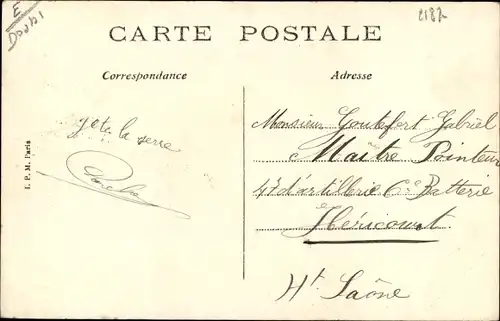 E
Doubs
2187
CARTE POSTALE
Correspondance
Adresse
la serre
I. P. M. Paris
Monsieur Goutefort Gabriel
Maitre Pointeur
47 d'artillerie 6e Batterie
Héricourt
Ht Saône